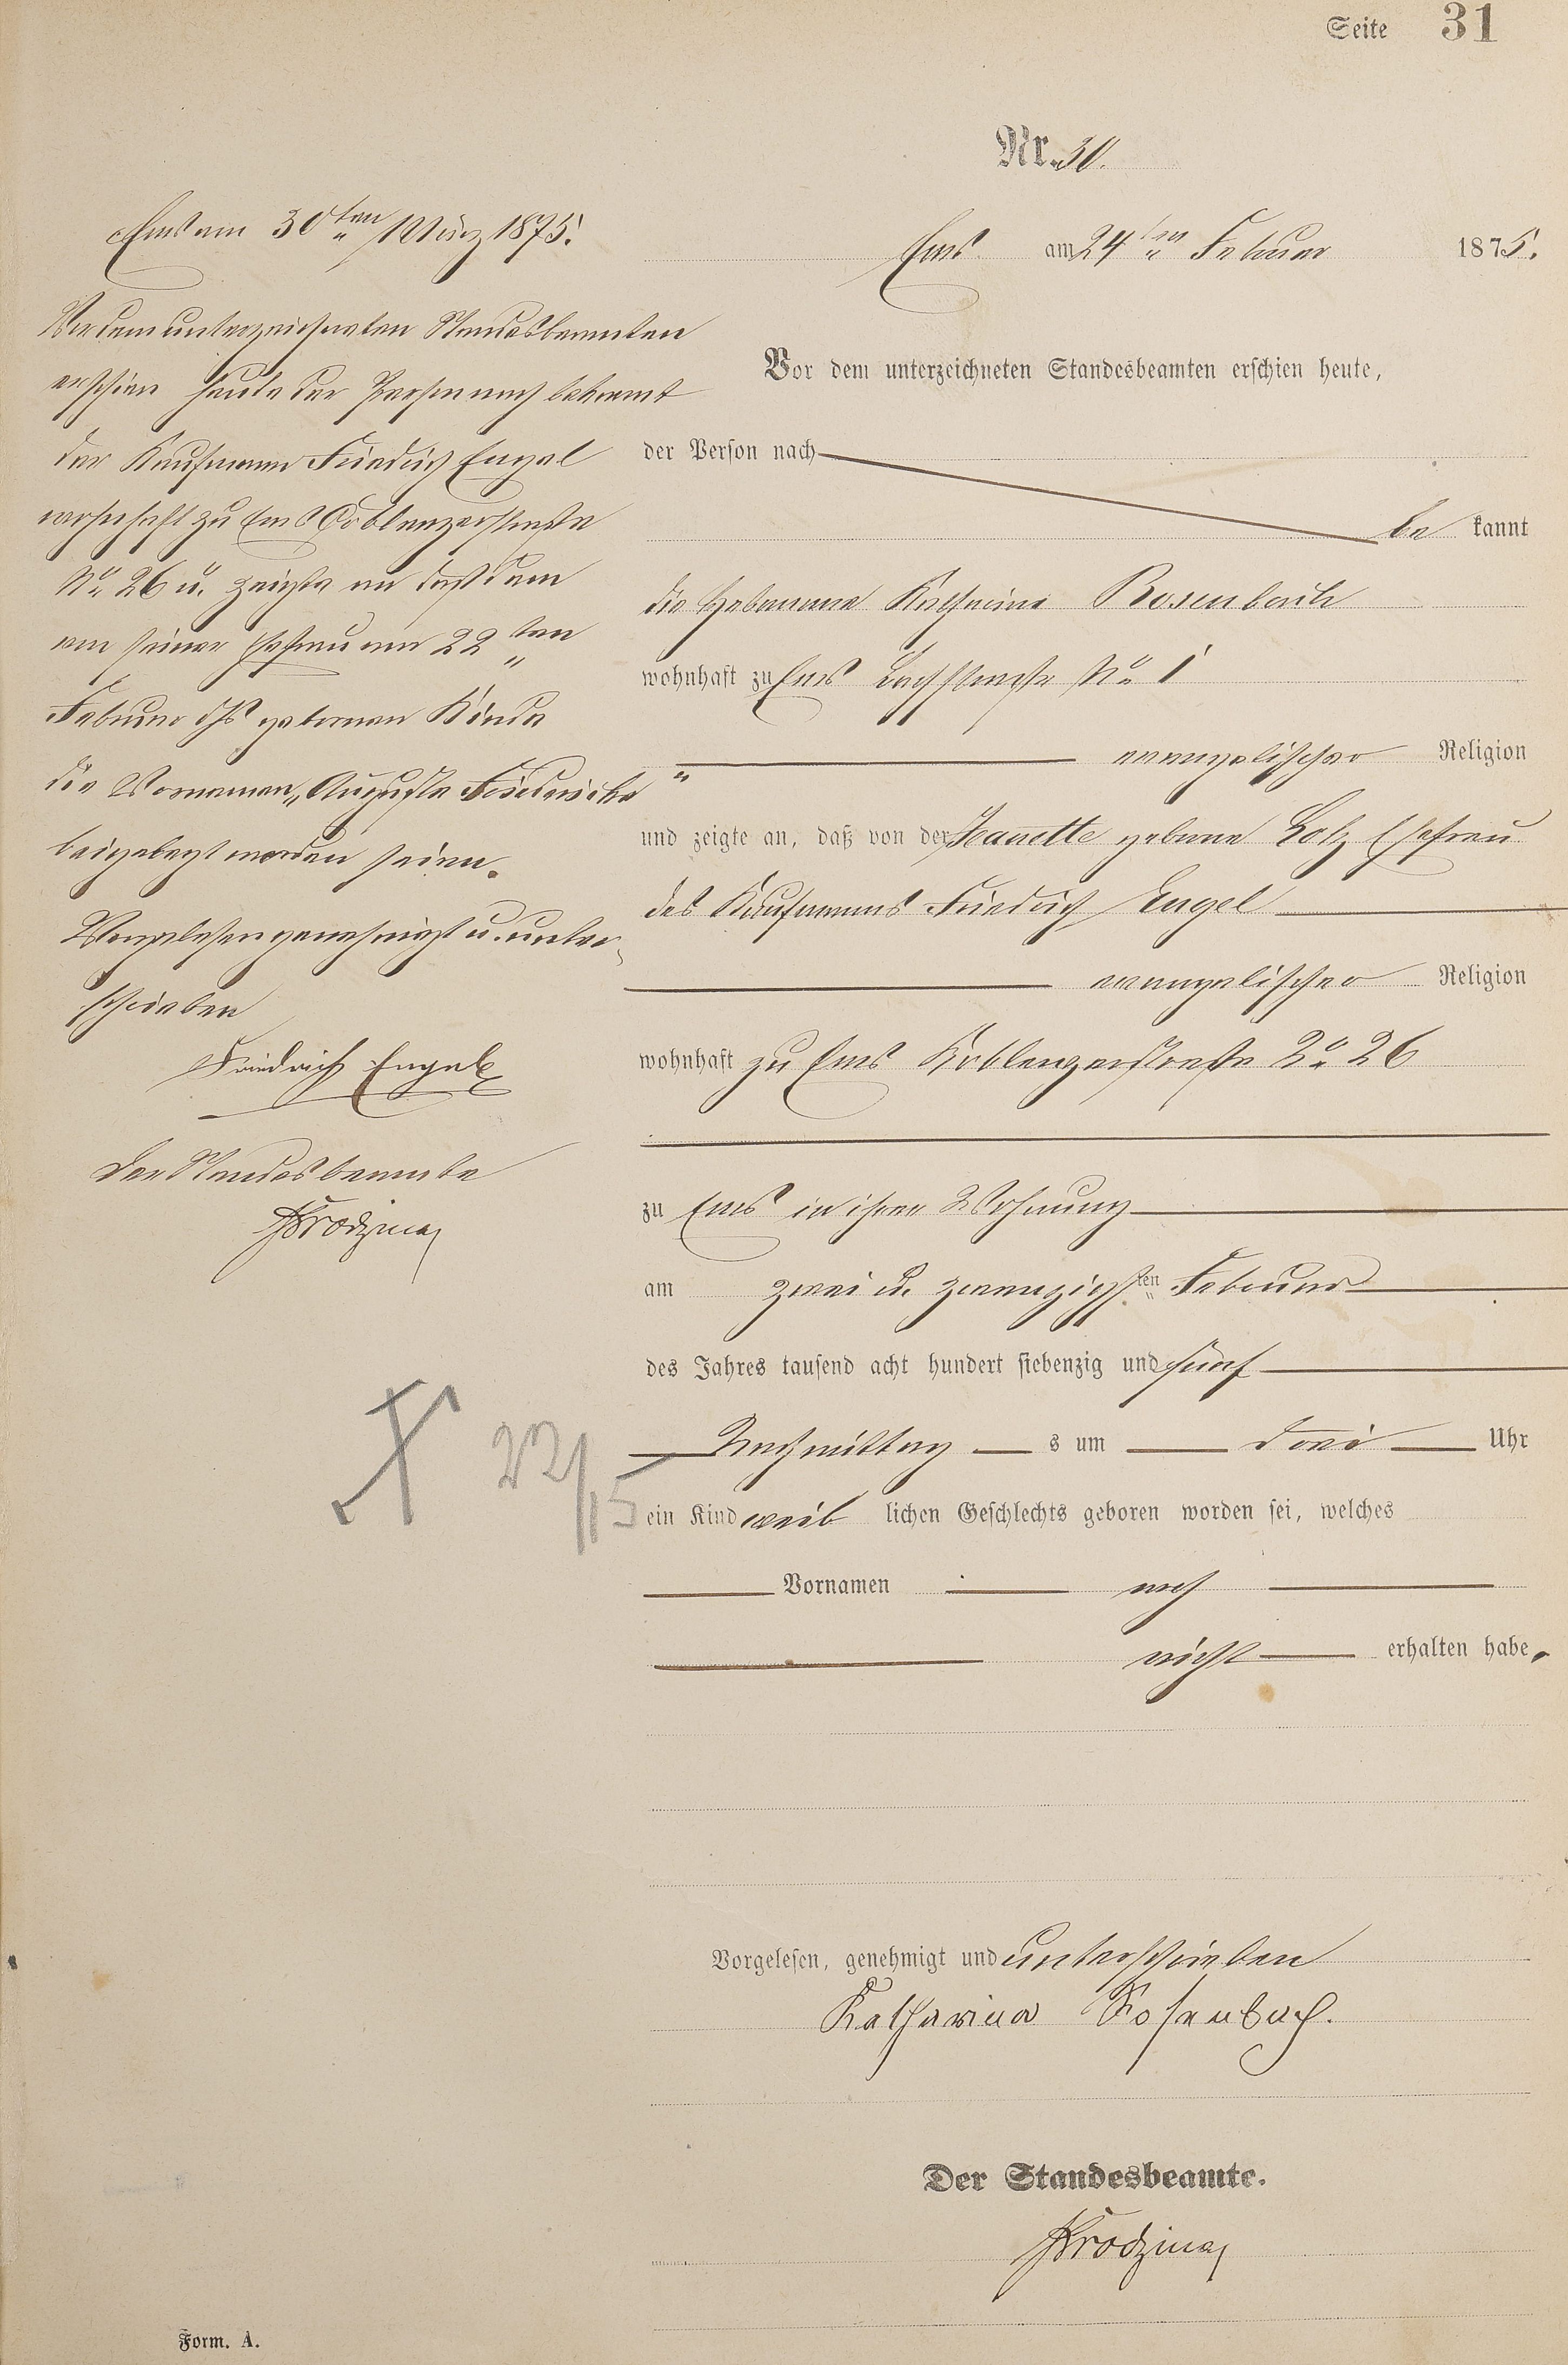 Seite 31
Nr. 30.
Ems am 24ten Februar 1875.
Vor dem unterzeichneten Standesbeamten erschien heute,
der Person nach
be kannt
die Hebamme Katharina Rosenbach
wohnhaft zu Ems Bachstraße No 1
evangelischer Religion
und zeigte an, daß von der Jeanette geborne Lotz Ehefrau
des Kaufmanns Friedrich Engel
evangelischer Religion
wohnhaft zu Ems Koblenzerstraße No 26
zu Ems in ihrer Wohnung
am zwei u. zwanzigsten Februar
des Jahres tausend acht hundert siebenzig und fünf
Nachmittag s um drei Uhr
ein Kind weib lichen Geschlechts geboren worden sei, welches
Vornamen noch
nicht erhalten habe.
Vorgelesen, genehmigt und unterschrieben
Katharina Rosenbach.
Der Standesbeamte.
Ems am 30ten März 1875.
Vor dem unterzeichneten Standesbeamten
erschien heute der Person nach bekannt
der Kaufmann Friedrich Engel
wohnhaft zu Ems Coblenzerstraße
No 26 u. zeigte an daß dem
von seiner Ehefrau am 22ten
Februar dJs gebornen Kinde
die Vornamen „Auguste Friedericke"
beigelegt worden seien.
Vorgelesen genehmigt u. unter-
schrieben
Friedrich Engel
Der Standesbeamte
Form. A.